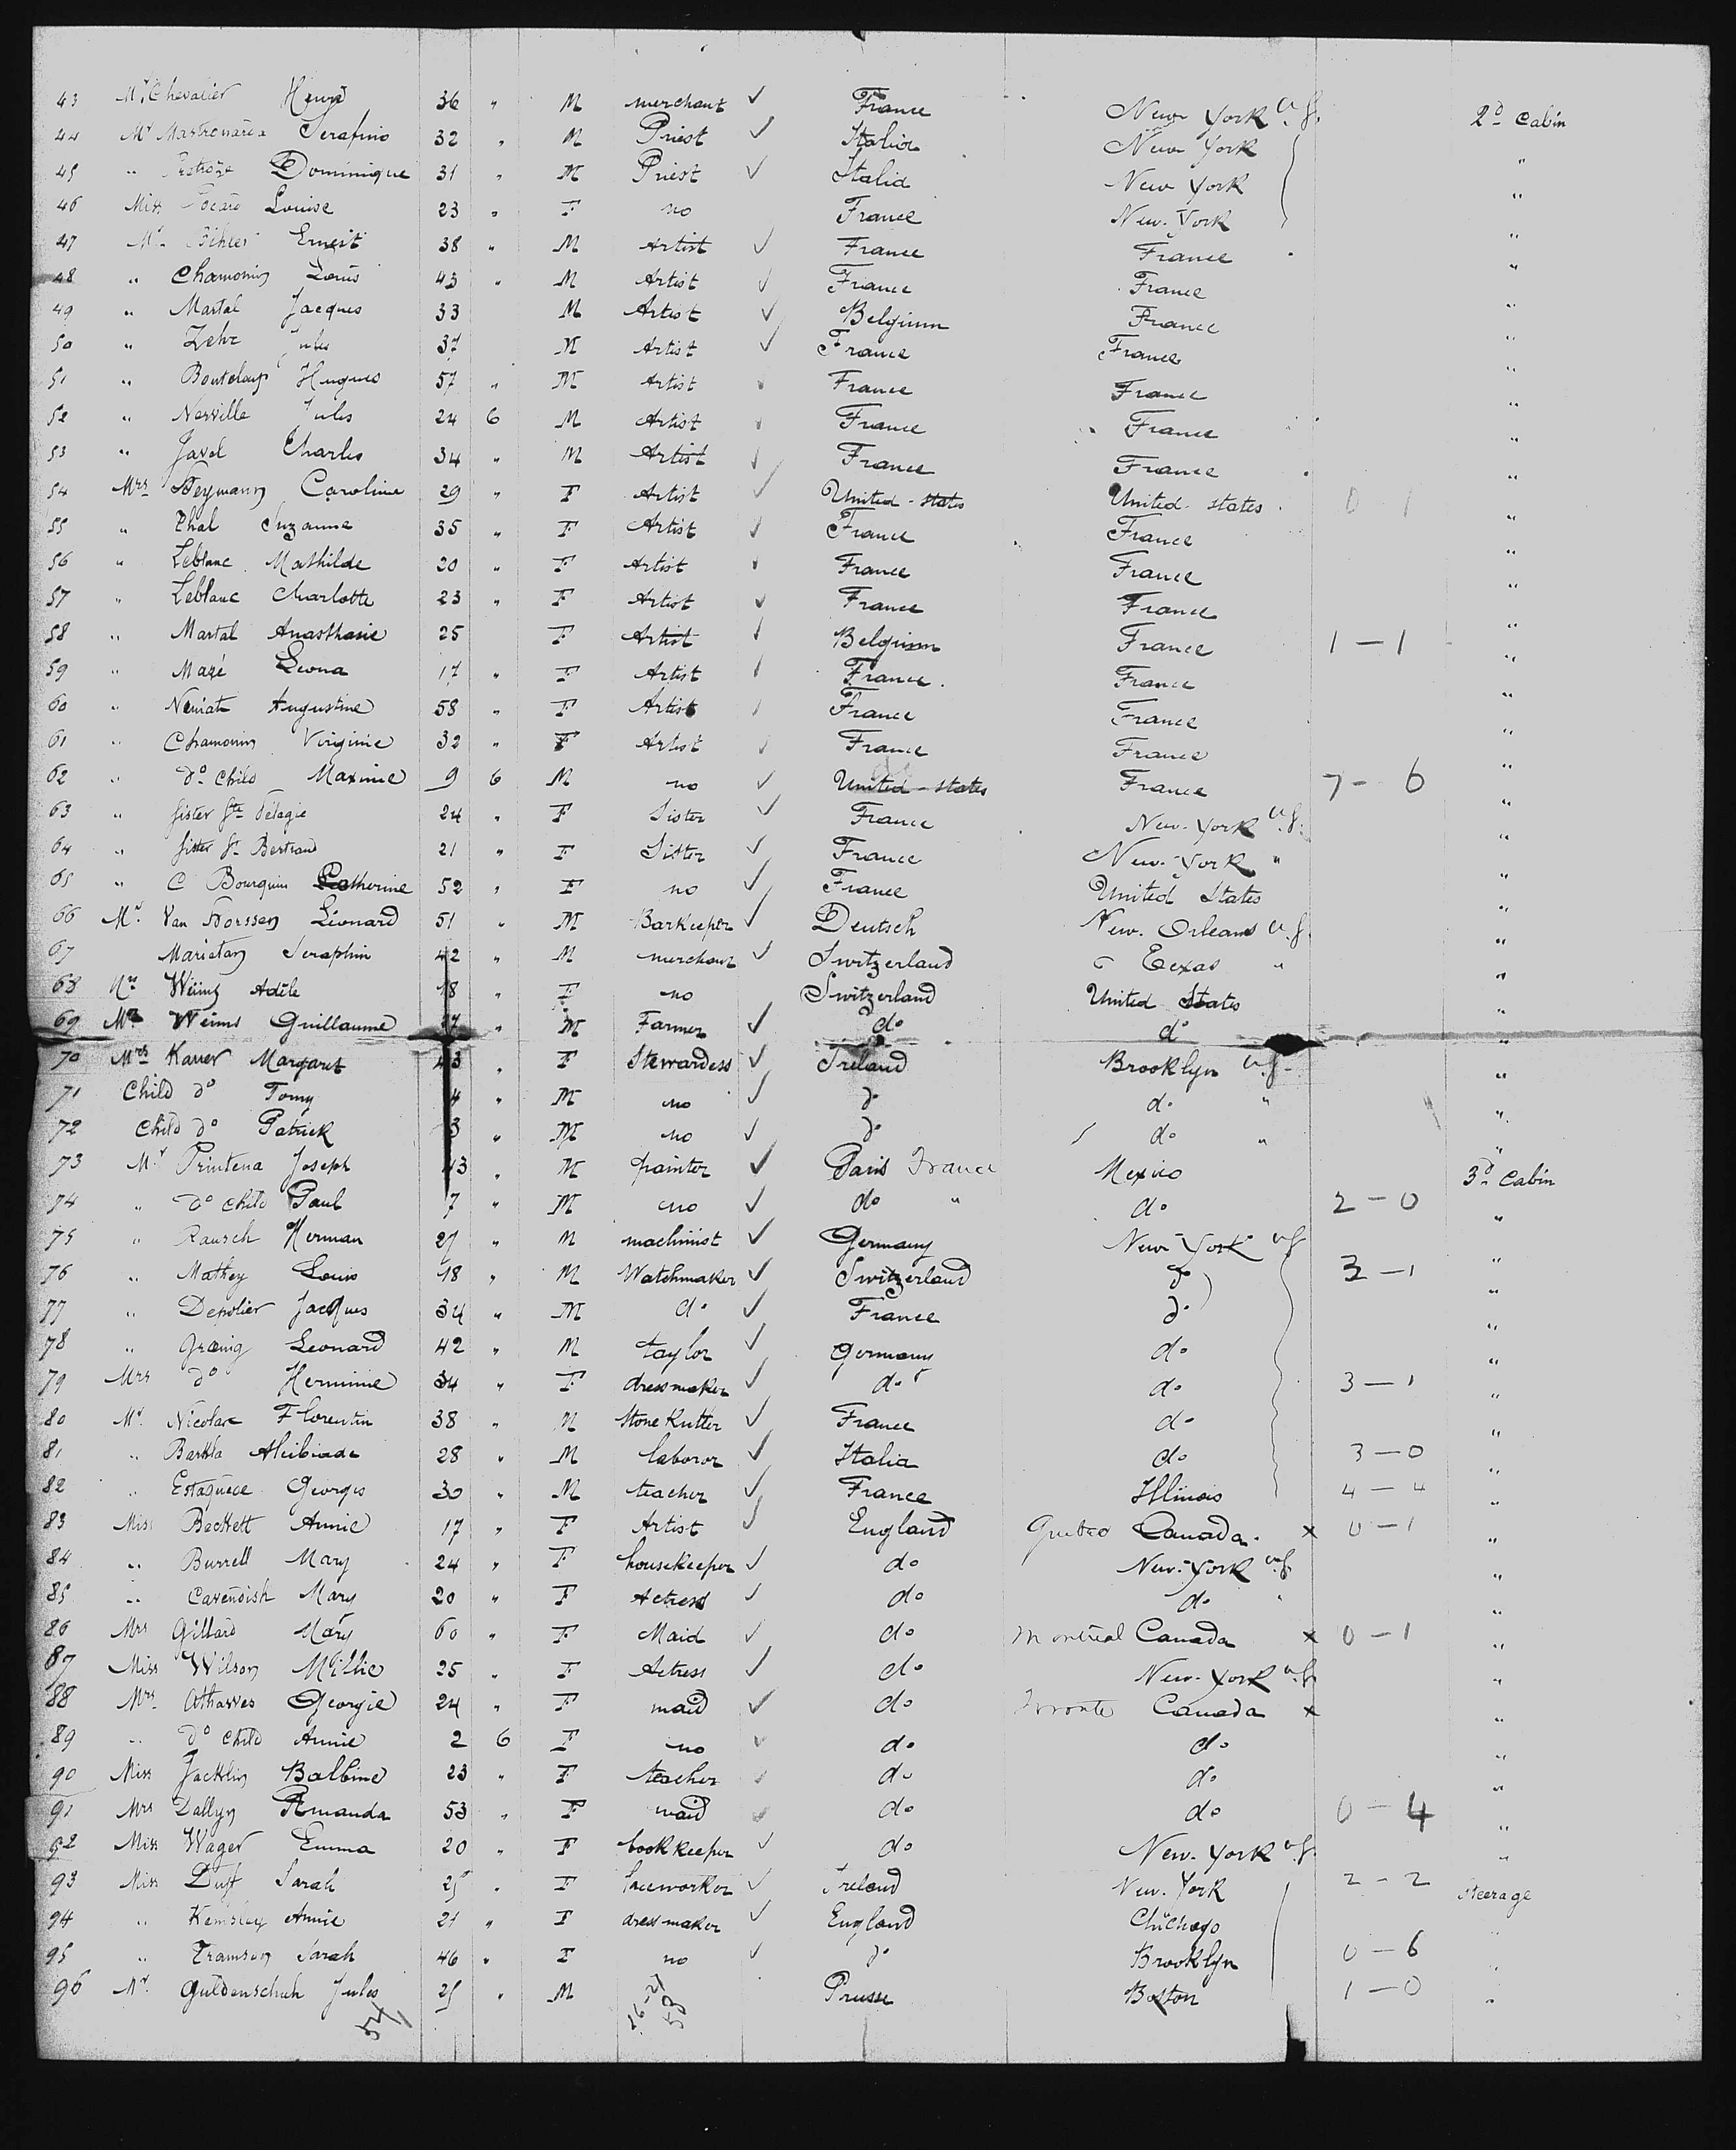 43 Mr Chevalier Henry 36 " M merchant ✓ France New York U.S. 2d Cabin
44 Mr Serafino 32 " M Priest ✓ Italia New York "
45 " Dominique 31 " M Priest ✓ Italia New York "
46 Miss Louise 23 " F no France New-York "
47 Mr Ernest 38 " M Artist ✓ France France "
48 " Chamonin Louis 43 " M Artist ✓ France France "
49 " Martal Jacques 33 M Artist ✓ Belgium France "
50 " Jules 37 M Artist ✓ France France "
51 " Hugues 57 " M Artist ✓ France France "
52 " Nerville Jules 24 6 M Artist ✓ France France "
53 " Javel Charles 34 " M Artist ✓ France France "
54 Mrs Heymann Caroline 29 " F Artist ✓ United-States United-States 0 1 "
55 " Thal Suzanne 35 " F Artist ✓ France France "
56 " Leblanc Mathilde 20 " F Artist ✓ France France "
57 " Leblanc Charlotte 23 " F Artist ✓ France France "
58 " Martal Anasthasie 25 F Artist ✓ Belgium France 1-1 "
59 " Mazé Leona 17 " F Artist ✓ France France "
60 " Augustine 58 " F Artist ✓ France France "
61 " Chamonin Virginie 32 " F Artist ✓ France France "
62 " do child Maxime 9 6 M no ✓ United-States France 7-6 "
63 " Sister Ste Pélagie 24 " F Sister ✓ France New-York U.S. "
64 " Sister St Bertrand 21 " F Sister ✓ France New-York " "
65 " C Bourquin Catherine 52 " F no ✓ France United States "
66 Mr. Van Léonard 51 " M Barkeeper ✓ Deutsch New-Orleans U.S. "
67 Marietan Seraphin 42 " M merchant ✓ Switzerland Texas " "
68 Adèle 18 " F no Switzerland United States "
69 Mr Guillaume " M Farmer ✓ do do "
70 Mrs Karrer Margaret 43 " F Stewardess ✓ Ireland Brooklyn U.S. "
71 Child do Tomy 4 " M no ✓ do do " "
72 Child do Patrick 3 " M no ✓ do do " "
73 Mr Printena Joseph 43 " M painter ✓ Paris France Mexico 3d Cabin
74 " do child Paul 7 " M no ✓ do " do 2-0 "
75 " Rausch Herman 27 " M machinist ✓ Germany New-York U.S. "
76 " Mathey Louis 18 " M Watchmaker ✓ Switzerland do 3-1 "
77 " Depolier Jacques 34 " M do ✓ France do "
78 " Leonard 42 " M taylor ✓ Germany do "
79 Mrs do Herminie 34 " F dressmaker ✓ do do 3-1 "
80 Mr. Florentin 38 " M Stone Kutter ✓ France do "
81 " Alcibiade 28 " M laboror ✓ Italia do 3-0 "
82 " Georges 30 " M teacher ✓ France Illinois 4-4 "
83 Miss Beckett Annie 17 " F Artist ✓ England Quebec Canada. x 0-1 "
84 " Burrell Mary 24 " F housekeeper ✓ do New-York U.S. "
85 " Cavendish Mary 20 " F Actress ✓ do do "
86 Mrs Gillard Mary 60 " F Maid ✓ do Montreal Canada x 0-1 "
87 Miss Wilson Millie 25 " F Actress ✓ do New-York U.S. "
88 Mrs Georgie 24 " F maid ✓ do Toronto Canada x "
89 " do child Annie 2 6 F no ✓ do do "
90 Miss Jacklin Balbine 23 " F teacher ✓ do do "
91 Mrs Dallyn Amanda 53 " F maid ✓ do do 0-4 "
92 Miss Wager Emma 20 " F book keeper ✓ do New-York U.S. "
93 Miss Duff Sarah 25 " F laceworker ✓ Ireland New-York 2-2 Steerage
94 " Kemsley Annie 21 " F dressmaker ✓ England Chichago "
95 " Sarah 46 " F no ✓ do Brooklyn 0-6 "
96 Mr. Guldenschuh Jules 25 " M Prusse Boston 1-0 "
54
58